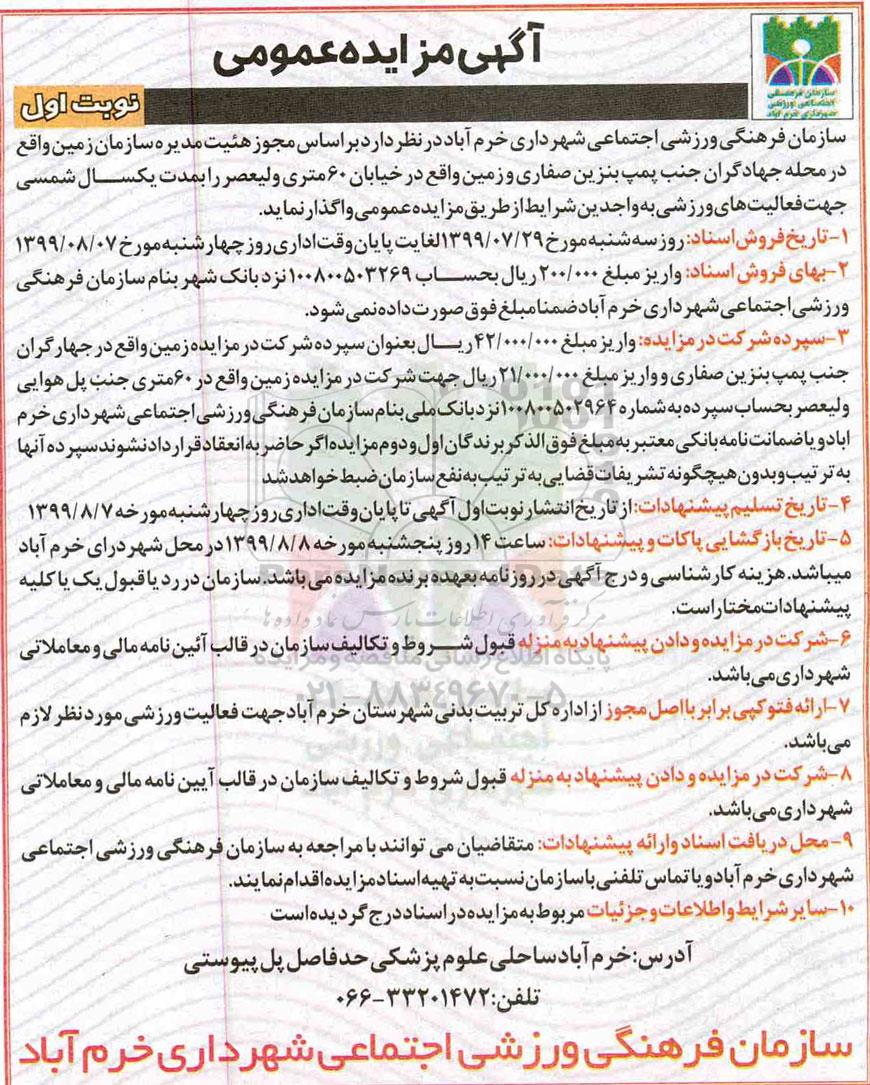 آگهی مزایده عمومی
سازمان فرهنگی
اجتماعی ورزشی
شهرداری خرم آباد
نوبت اول
سازمان فرهنگی ورزشی اجتماعی شهرداری خرم آباد در نظر دارد بر اساس مجوز هئیت مدیره سازمان زمین واقع
در محله جهادگران جنب پمپ بنزین صفاری و زمین واقع در خیابان ۶۰ متری ولیعصر را بمدت یکسال شمسی
جهت فعالیت های ورزشی به واجدین شرایط از طریق مزایده عمومی واگذار نماید.
۱- تاریخ فروش اسناد: روز سه شنبه مورخ ۱۳۹۹/۰۷/۲۹ لغایت پایان وقت اداری روز چهارشنبه مورخ ۱۳۹۹/۰۸/۰۷
۲- بهای فروش اسناد: واریز مبلغ ۲۰۰/۰۰۰ ریال بحساب ۱۰۰۸۰۰۵۰۳۲۶۹ نزد بانک شهر بنام سازمان فرهنگی
ورزشی اجتماعی شهرداری خرم آباد ضمنا مبلغ فوق صورت داده نمی شود.
۳- سپرده شرکت در مزایده: واریز مبلغ ۴۲/۰۰۰/۰۰۰ ریال بعنوان سپرده شرکت در مزایده زمین واقع در جهارگران
جنب پمپ بنزین صفاری و واریز مبلغ ۲۱/۰۰۰/۰۰۰ ریال جهت شرکت در مزایده زمین واقع در ۶۰ متری جنب پل هوایی
ولیعصر بحساب سپرده به شماره ۱۰۰۸۰۰۵۰۲۹۶۴ نزد بانک ملی بنام سازمان فرهنگی ورزشی اجتماعی شهرداری خرم
اباد و یا ضمانت نامه بانکی معتبر به مبلغ فوق الذکر برندگان اول و دوم مزایده اگر حاضر به انعقاد قرار داد نشوند سپرده آنها
به ترتیب و بدون هیچگونه تشریفات قضایی به ترتیب به نفع سازمان ضبط خواهد شد
۴- تاریخ تسلیم پیشنهادات: از تاریخ انتشار نوبت اول آگهی تا پایان وقت اداری روز چهارشنبه مورخه ۱۳۹۹/۸/۷
۵- تاریخ بازگشایی پاکات و پیشنهادات: ساعت ۱۴ روز پنجشنبه مورخه ۱۳۹۹/۸/۸ در محل شهردرای خرم آباد
میباشد. هزینه کارشناسی و درج آگهی در روزنامه بعهده برنده مزایده می باشد. سازمان در رد یا قبول یک یا کلیه
پیشنهادات مختار است.
۶- شرکت در مزایده و دادن پیشنهاد به منزله قبول شروط و تکالیف سازمان در قالب آئین نامه مالی و معاملاتی
شهرداری می باشد.
۷- ارائه فتوکپی برابر با اصل مجوز از اداره کل تربیت بدنی شهرستان خرم آباد جهت فعالیت ورزشی مورد نظر لازم
می باشد.
۸- شرکت در مزایده و دادن پیشنهاد به منزله قبول شروط و تکالیف سازمان در قالب آیین نامه مالی و معاملاتی
شهرداری می باشد.
۹- محل دریافت اسناد و ارائه پیشنهادات: متقاضیان می توانند با مراجعه به سازمان فرهنگی ورزشی اجتماعی
شهرداری خرم آباد و یا تماس تلفنی با سازمان نسبت به تهیه اسناد مزایده اقدام نمایند.
۱۰- سایر شرایط و اطلاعات و جزئیات مربوط به مزایده در اسناد درج گردیده است
آدرس: خرم آباد ساحلی علوم پزشکی حدفاصل پل پیوستی
تلفن: ۳۳۲۰۱۴۷۲-۰۶۶
سازمان فرهنگی ورزشی اجتماعی شهرداری خرم آباد
پایگاه اطلاع رسانی مناقصه و مزایده
۰۲۱-۸۸۳۴۹۶۷۰-۵